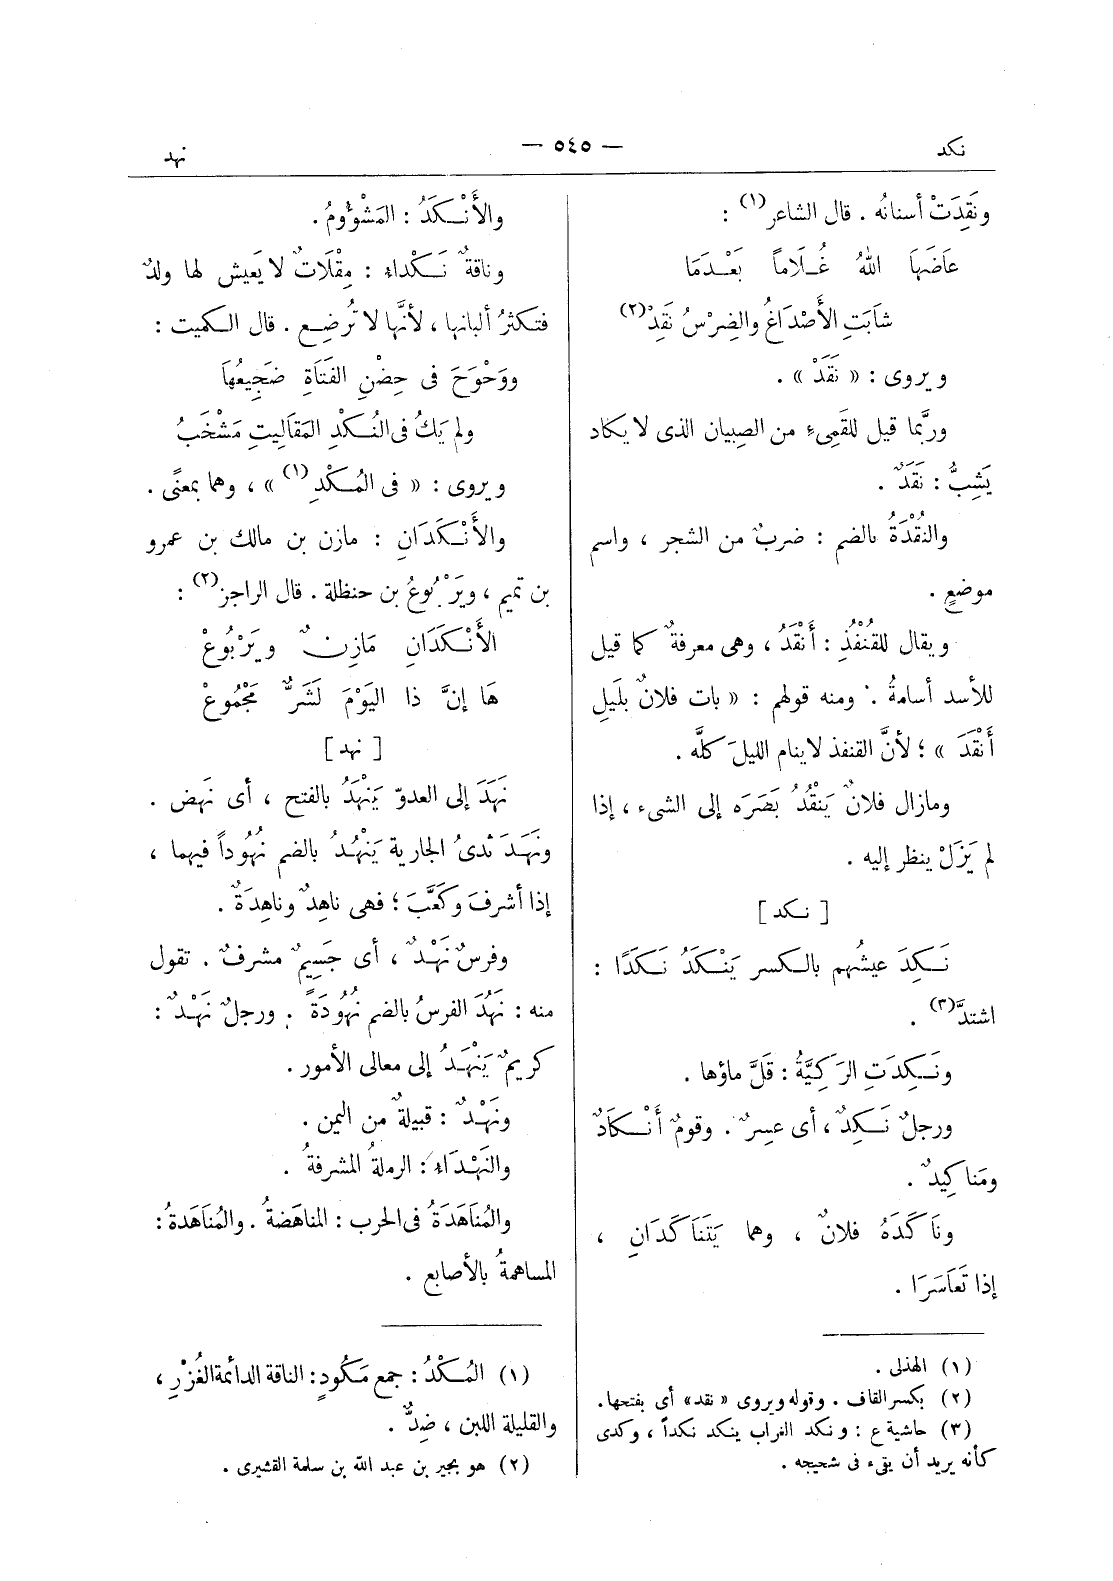 نكد
— ٥٤٥ —
نهد
ونَقِدَتْ أسنانُه . قال الشاعر(١) :
عَاضَهَا اللهُ غُـلَاماً بَعْـدَمَا
شابَتِ الأَصْدَاغُ والضِرْسُ نَقِدْ(٢)
ويروى : « نَقَدْ » .
وربَّما قيل للقَمِىءِ من الصِبيان الذى لا يكاد
يَشِبُّ : نَقَدٌ .
والنُقْدَةُ بالضم : ضربٌ من الشجر ، واسم
موضعٍ .
ويقال للقُنْفُذِ : أَنْقَدُ ، وهى معرفةٌ كما قيل
للأسد أسامةُ . ومنه قولهم : « بات فلانٌ بلَيلِ
أَنْقَدَ » ؛ لأنَّ القنفذ لاينام الليلَ كلَّه .
ومازال فلانٌ يَنْقُدُ بَصَرَه إلى الشىء ، إذا
لم يَزَلْ ينظر إليه .
[ نكد ]
نَـكِدَ عيشُهم بالـكسر يَنْـكَدُ نَـكَدًا :
اشتدَّ(٣) .
ونَـكِدَتِ الرَكِيَّةُ : قَلَّ ماؤها .
ورجلٌ نَـكِدٌ ، أى عسِرٌ . وقومٌ أَنْـكَادٌ
ومَناكِيدٌ .
ونَاكَدَهُ فلانٌ ، وهما يَتَنَاكَدَانِ ،
إذا تَعَاسَرَا .
(١) الهذلى .
(٢) بكسر القاف . وقوله ويروى « نقد» أى بفتحها.
(٣) حاشية ع : ونكد الغراب ينكد نكداً ، وكدى
كأنه يريد أن يقىء فى شحيجه .
والأَنْـكَدُ : المَشْؤومُ .
وناقةٌ نَـكْداء : مِقْلَاتٌ لا يَعيش لها ولدٌ
فتكثرُ ألبانها ، لأنَّها لا تُرضِـع . قال الـكميت :
ووَحْوَحَ فى حِضْنِ الفَتَاةِ ضَجِيعُهَا
ولم يَكُ فى النُـكْدِ المَقَاليتِ مَشْخَبُ
ويروى : « فى المُـكْدِ(١) » ، وهما بمعنًى .
والأَنْـكَدَانِ : مازن بن مالك بن عمرو
بن تميم ، ويَرْبُوعُ بن حنظلة . قال الراجز(٢) :
الأَنْـكَدَانِ مَازِنٌ ويَرْبُوعْ
هَا إنَّ ذا اليَوْمَ لَشَرٌّ مَجْمُوعْ
[ نهد ]
نَهَدَ إلى العدوّ يَنْهَدُ بالفتح ، أى نَهض .
ونَهَـدَ ثدىُ الجارية يَنْهُدُ بالضم نُهُوداً فيهما ،
إذا أشرفَ وكَعَّبَ ؛ فهى ناهِدٌ وناهِدَةٌ .
وفرسٌ نَهْـدٌ ، أى جَسِيمٌ مشرفٌ . تقول
منه : نَهُدَ الفرسُ بالضم نُهُودَةً . ورجلٌ نَهْـدٌ :
كريمٌ يَنْهَـدُ إلى معالى الأمور .
ونَهْـدٌ : قبيلةٌ من اليمن .
والنَهْـدَاءُ : الرملةُ المشرفةُ .
والمُنَاهَدَةُ فى الحرب : المناهَضةُ . والمُنَاهَدةُ :
المساهمةُ بالأصابع .
(١) المُـكْدُ : جمع مَـكُودٍ: الناقة الدائمة الغُزْرِ ،
والقليلة اللبن ، ضِدٌّ .
(٢) هو بجير بن عبد الله بن سلمة القشيرى .